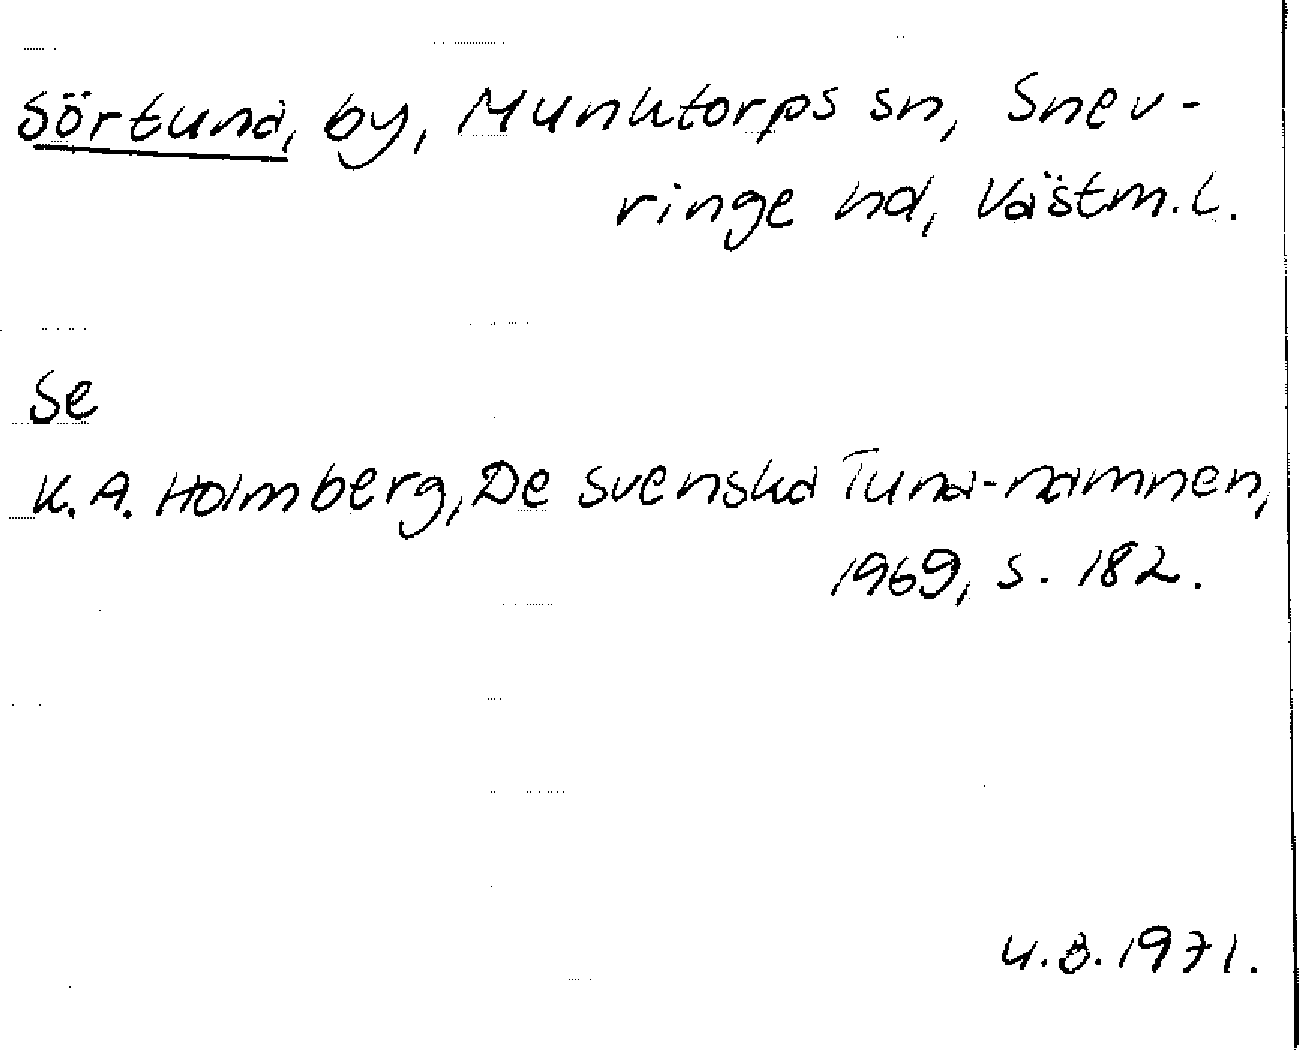 Sörtuna, by, Munktorps sn, Snev-
ringe hd, Västm.l.
Se
K.A. Holmberg, De svenska Tuna-namnen,
1969, s. 182.
4.8.1971.